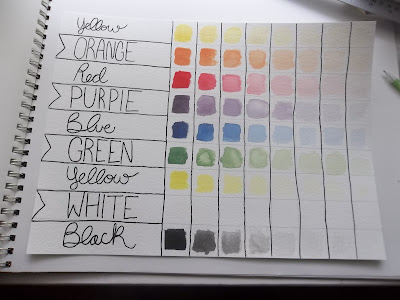 Yellow
ORANGE
Red
PURPlE
Blue
GREEN
Yellow
WHITE
Black